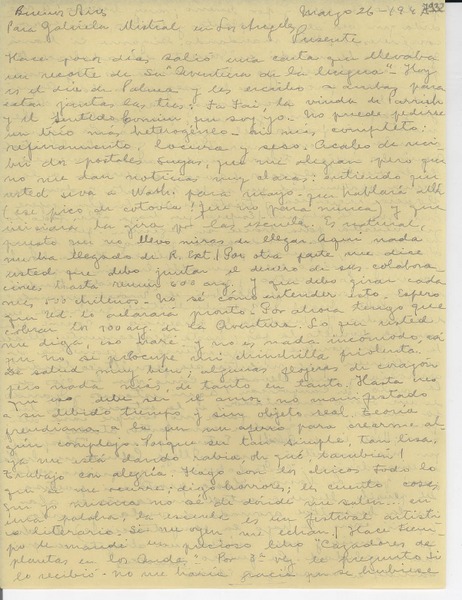 Buenos Aires Marzo 26-194
Para Gabriela Mistral en Los Angeles
Presente.
Hace pocos días salió una carta que llevaba
un recorte de su "Aventura de la lengua". Hoy
es el día de Palma y les escribo a ambas para
estar juntas las tres: la Fai, la viuda de Parrish
y el Sentido Común, que soy yo. No puede pedirse
un trío más heterogéneo ni más completo:
refinamiento, locura y seso. Acabo de reci-
bir dos postales suyas, que me alegran pero que
no me dan noticias muy claras: entiendo que
usted se va a Wash. para mayo- que hablará allí
(ese pico de cotovía! que no para nunca) y que
iniciará la gira por las escuelas. Es natural,
puesto que no lleva miras de llegar. Aquí nada
me ha llegado de R. Ext. Por otra parte me dice
usted que debo juntar el dinero de sus colabora-
ciones hasta reunir 600 arg. y que debo girar cada
mes 500 chilenos. No sé cómo entender esto. Espero
que Ud. lo aclarará pronto. Por ahora tengo que
cobrar los 100 arg. de la Aventura. Lo que usted
me diga, eso haré y no es nada incómodo, así
que no se preocupe mi chinchilla friolenta.
De salud muy bien; algunas
pero nada más, de tanto en tanto. Hasta creo
que eso debe ser el amor no manifestado
a su debido tiempo y sin objeto real. Teoría
freudiana a la que me aferro para crearme al-
gún complejo. Porque ser tan simple, tan lisa,
ya me está dando rabia, de qué, también!
Trabajo con alegría. Hago con los chicos todo lo
que se me ocurre; digo horrores; les cuento cosas
que yo misma no sé de dónde me salen... en
una palabra, la escuela es un festival artísti-
co literario. Si me oyen me echan! Hace tiem-
po le mandé un precioso libro "Cazadores de
plantas en los Andes". Por 3ª vez le pregunto si
lo recibió- no me haría gracia que se hubiese